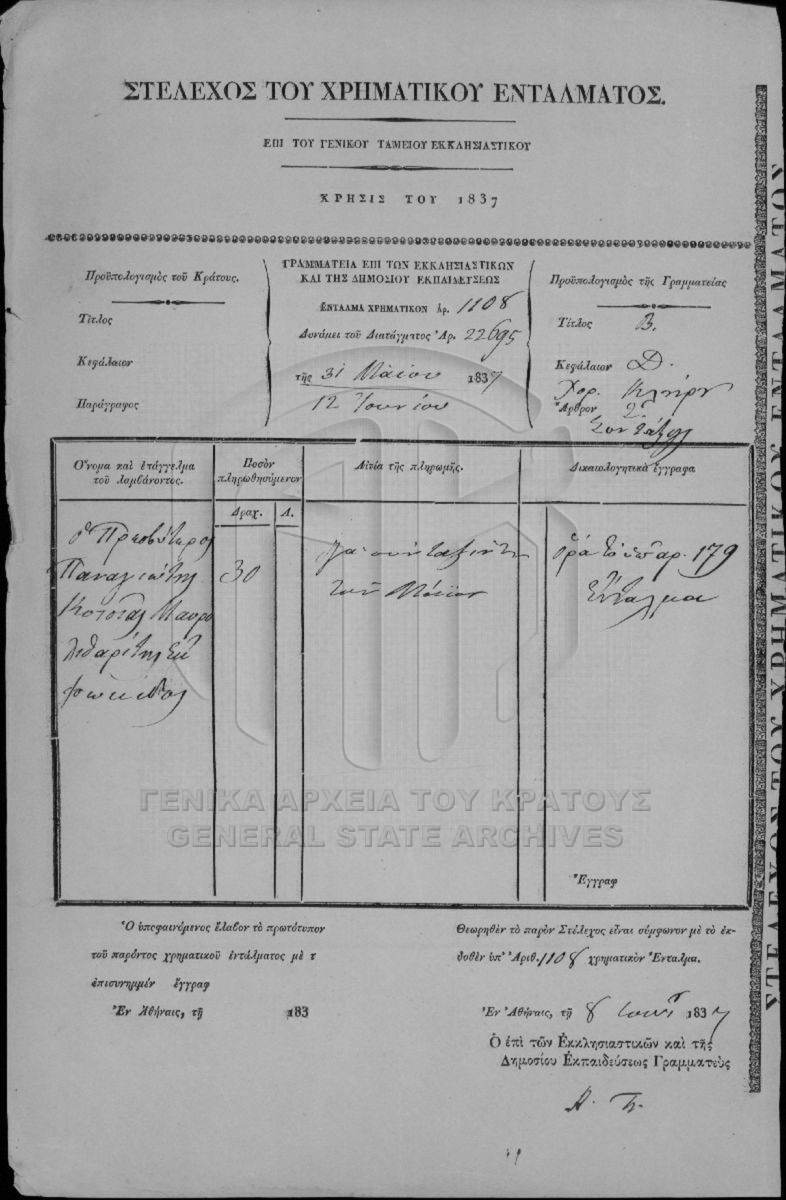 ΣΤΕΛΕΧΟΣ ΤΟΥ ΧΡΗΜΑΤΙΚΟΥ ΕΝΤΑΛΜΑΤΟΣ.
ΕΠΙ ΤΟΥ ΓΕΝΙΚΟΥ ΤΑΜΕΙΟΥ ΕΚΚΛΗΣΙΑΣΤΙΚΟΥ
ΧΡΗΣΙΣ ΤΟΥ 1837
Προϋπολογισμὸς τοῦ Κράτους.
Τίτλος
Κεφάλαιον
Παράγραφος
ΓΡΑΜΜΑΤΕΙΑ ΕΠΙ ΤΩΝ ΕΚΚΛΗΣΙΑΣΤΙΚΩΝ
ΚΑΙ ΤΗΣ ΔΗΜΟΣΙΟΥ ΕΚΠΑΙΔΕΥΣΕΩΣ
ΕΝΤΑΛΜΑ ΧΡΗΜΑΤΙΚΟΝ Ἀρ. 1108
Δυνάμει τοῦ Διατάγματος Ἀρ. 22695
τῆς 31 Μαΐου 1837
12 Ἰουνίου
Προϋπολογισμὸς τῆς Γραμματείας
Τίτλος Β.
Κεφάλαιον Δ.
Χορ. Κλήρου
Ἄρθρον 2
Συντάξεις
Ὄνομα καὶ ἐπάγγελμα
τοῦ λαμβάνοντος.
Ποσὸν
πληρωθησόμενον
Δραχ. Λ.
Αἰτία τῆς πληρωμῆς.
Δικαιολογητικὰ ἔγγραφα
ὁ Πρεσβύτερος
Παναγιώτης
Μαυρο
λιθαρίτης ἐκ
Φωκίδος
30
τὸν Μάϊον
ὅρα τὸ ὑπ' ἀρ. 179
Ἔνταλμα
Ἔγγραφ
ΓΕΝΙΚΑ ΑΡΧΕΙΑ ΤΟΥ ΚΡΑΤΟΥΣ
GENERAL STATE ARCHIVES
Ὁ ὑποφαινόμενος ἔλαβον τὸ πρωτότυπον
τοῦ παρόντος χρηματικοῦ ἐντάλματος μὲ τ
ἐπισυνημμέν ἔγγραφ
Ἐν Ἀθήναις, τῇ 183
Θεωρηθὲν τὸ παρὸν Στέλεχος εἶναι σύμφωνον μὲ τὸ ἐκ-
δοθὲν ὑπ' Ἀριθ. 1108 χρηματικὸν Ἔνταλμα.
Ἐν Ἀθήναις, τῇ 8 Ἰουν 1837
Ὁ ἐπὶ τῶν Ἐκκλησιαστικῶν καὶ τῆς
Δημοσίου Ἐκπαιδεύσεως Γραμματεὺς
ΣΤΕΛΕΧΟΣ ΤΟΥ ΧΡΗΜΑΤΙΚΟΥ ΕΝΤΑΛΜΑΤΟΣ